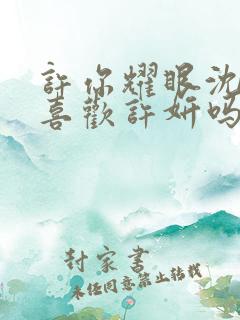 許你耀眼沈
喜歡許妍吗
封家書
未经同意禁止转载